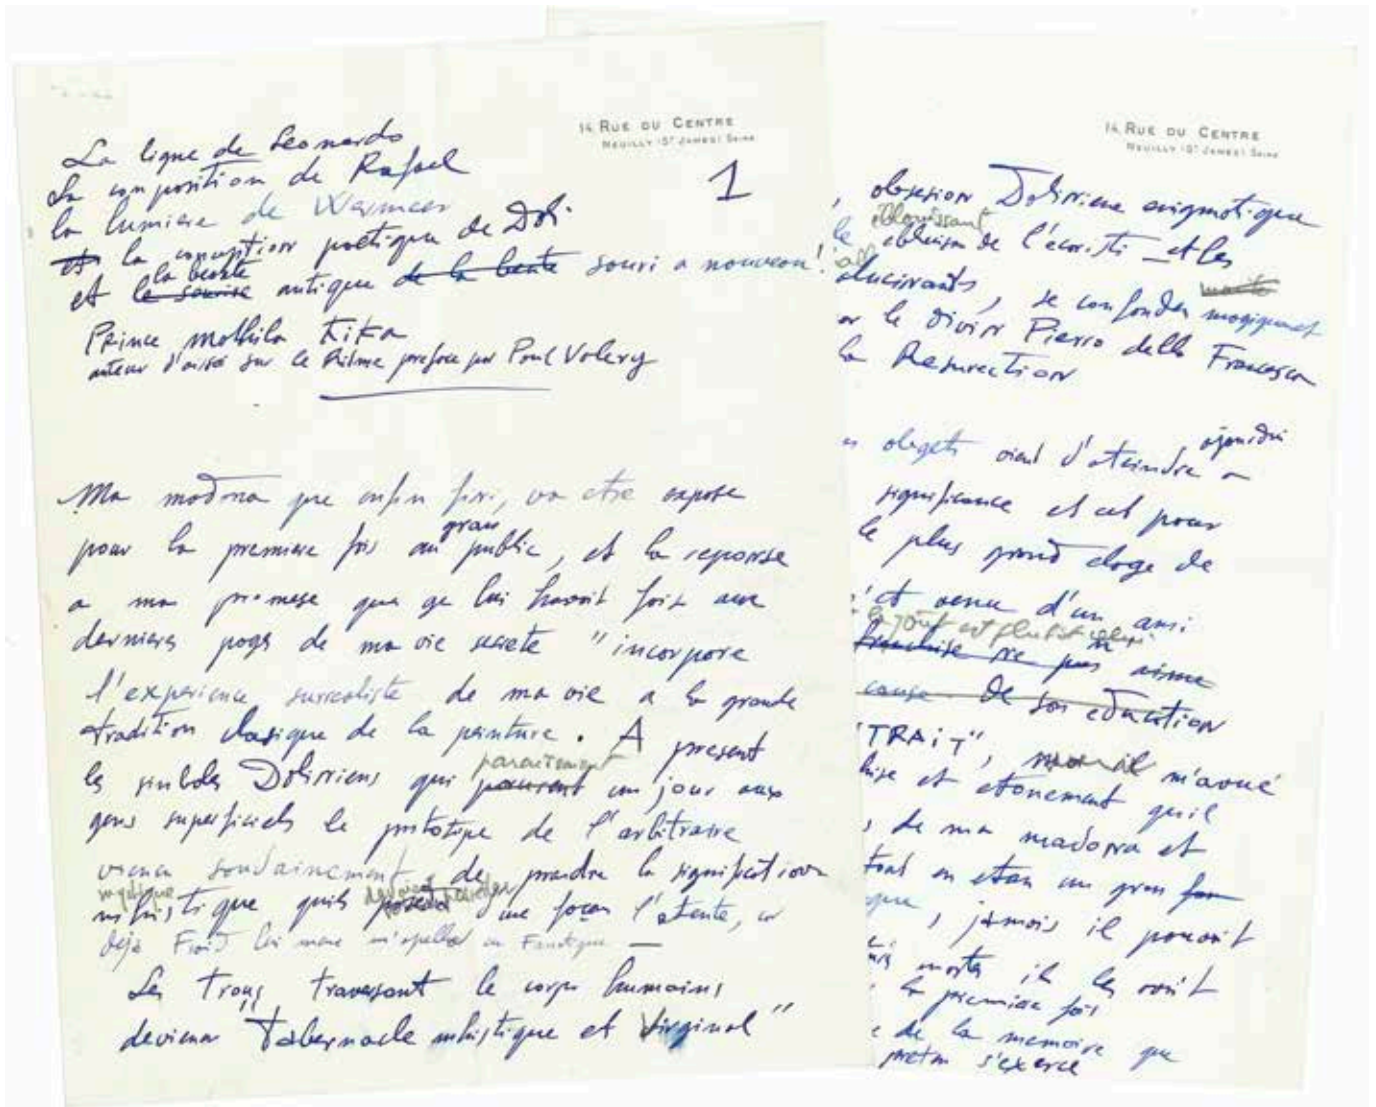 14 RUE DU CENTRE
NEUILLY (ST JAMES) SEINE
1
La ligne de Leonardo
La composition de Rafael
la lumiere de Wermeer
et la conception poetique de Dali
la beaute
et le sourise antique de la beute souri a nouveau!
Prince
auteur d'aissé sur le prefase par Poul Valery
Ma madona que enfin fini, va etre expose
gran
pour la premiere fois au public, et la reponse
a ma promese que ge lui havait fait aux
dernieres pages de ma vie secrete "incorpore
l'experience surrealiste de ma vie a la grande
tradition clasique de la peinture. A present
paraitement
les simboles Daliniens qui un jour aux
gens superficiels le prototipe de l'arbitraire
soudainement de prendre la signification
mystique
quils de façon l'atente, car
deja Froid lui meme m'apellait un Fanatique —
Les trous traversant le corps humains
devienen "Tabernacle mhistique et Virginal"
14 RUE DU CENTRE
NEUILLY (ST JAMES) SEINE
obsesion Daliniene enigmatique
eblouissant
le de l'ecoristi et les
alucinants, se confonden magiquement
le divin Piero della Francesca
la Resurection
ajourdui
obgets vient d'ateindre a
significance et cet pour
le plus grand eloge de
'et venu d'un ami
la goût est plutôt
francaise ne pas aime
cause de son education
"TRAIT", m'avoué
et etonement quil
de ma madona et
tout en etan un gran
, jamais il pouvait
mortes il les voit
la premiere fois
de la memoire que
s'exerce